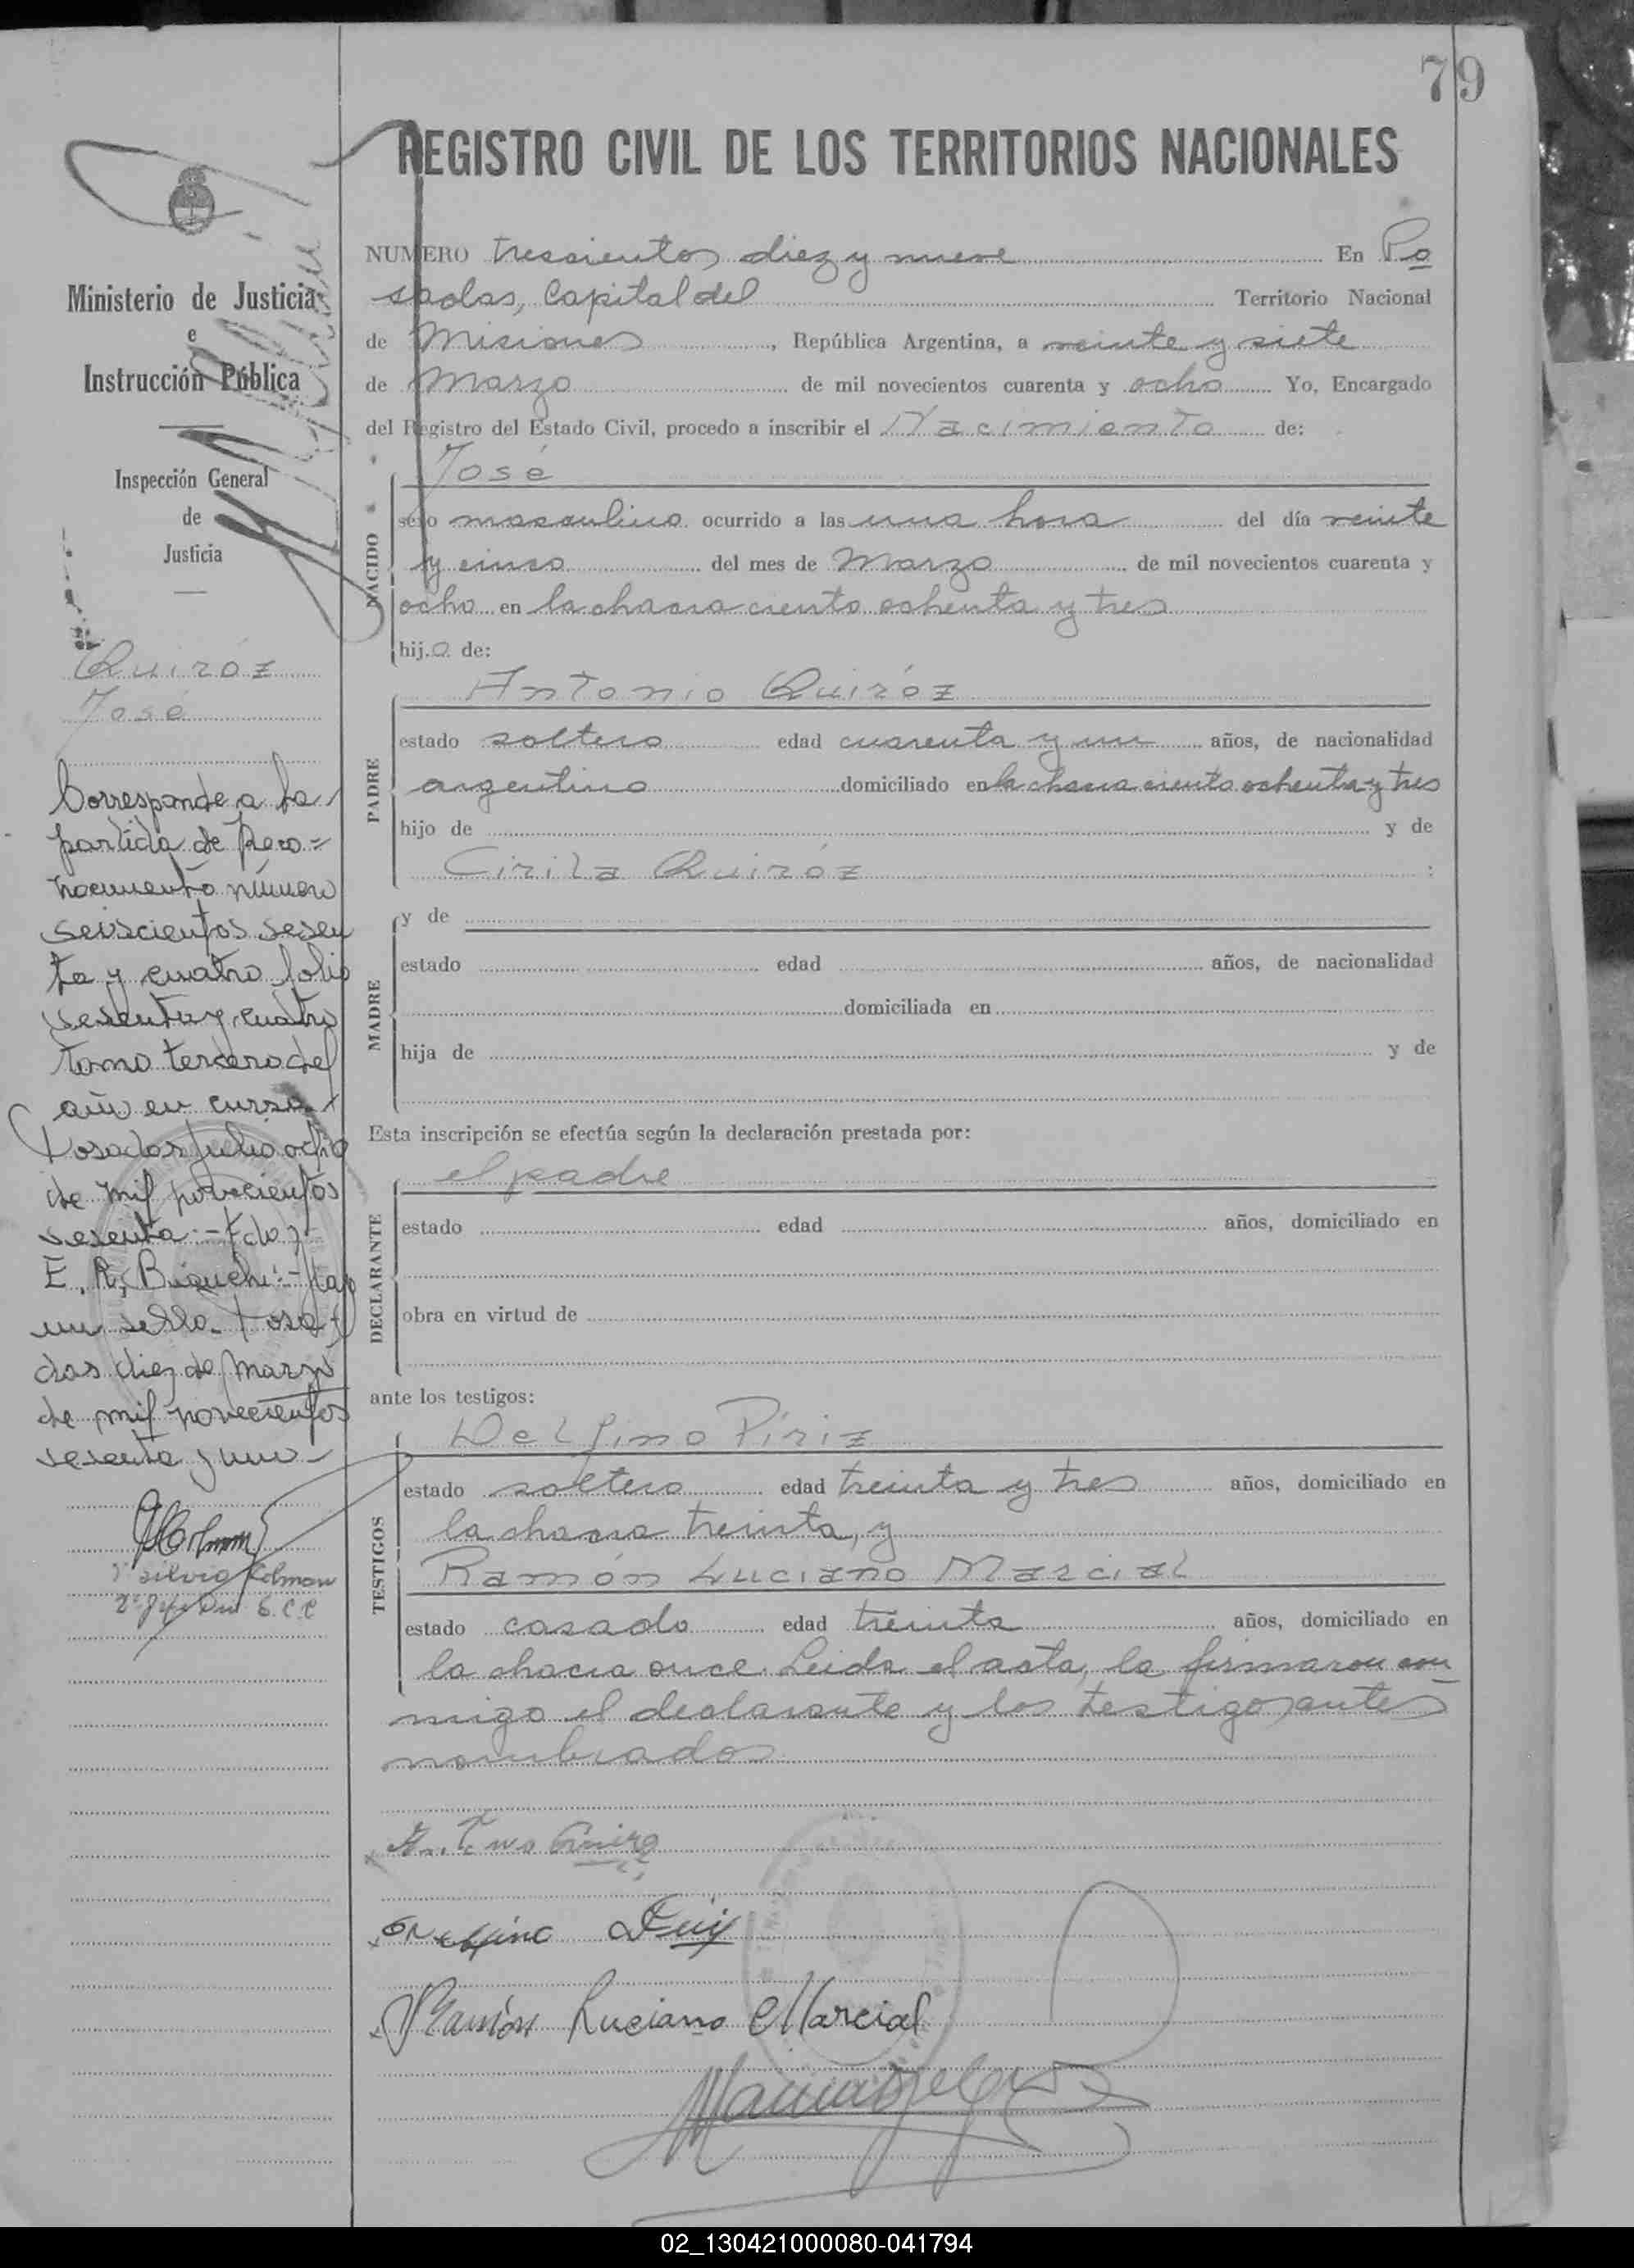 79
REGISTRO CIVIL DE LOS TERRITORIOS NACIONALES
Ministerio de Justicia
e
Instrucción Pública
Inspección General
de
Justicia
Quiróz
José
Corresponde a la
partida de Reco=
nocimiento número
seiscientos sesen
ta y cuatro folio
sesenta y cuatro
tomo tercero del
año en curso.
Posadas Julio ocho
de mil novecientos
sesenta.- Fdo)
E. R. Bianchi.- Hay
un sello. Posa-
das diez de Marzo
de mil novecientos
sesenta y uno-
Silvia Colman
2º Jefe
NUMERO trescientos diez y nueve En Po
sadas, Capital del Territorio Nacional
de Misiones, República Argentina, a veinte y siete
de Marzo de mil novecientos cuarenta y ocho Yo, Encargado
del Registro del Estado Civil, procedo a inscribir el Nacimiento de:
NACIDO
José
sexo masculino ocurrido a las una hora del día veinte
y cinco del mes de Marzo de mil novecientos cuarenta y
ocho en la chacra ciento ochenta y tres
hijo de:
PADRE
Antonio Quiróz
estado soltero edad cuarenta y un años, de nacionalidad
argentino domiciliado en la chacra ciento ochenta y tres
hijo de y de
Cirila Quiróz :
MADRE
y de
estado edad años, de nacionalidad
domiciliada en
hija de y de
Esta inscripción se efectúa según la declaración prestada por:
DECLARANTE
el padre
estado edad años, domiciliado en
obra en virtud de
ante los testigos:
TESTIGOS
Delfino Píriz
estado soltero edad treinta y tres años, domiciliado en
la chacra treinta, y
Ramón Luciano Marcial
estado casado edad treinta años, domiciliado en
la chacra once. Leida el acta, la firmaron con
migo el declarante y los testigos antes
nombrados
Ramón Luciano Marcial
02_130421000080-041794